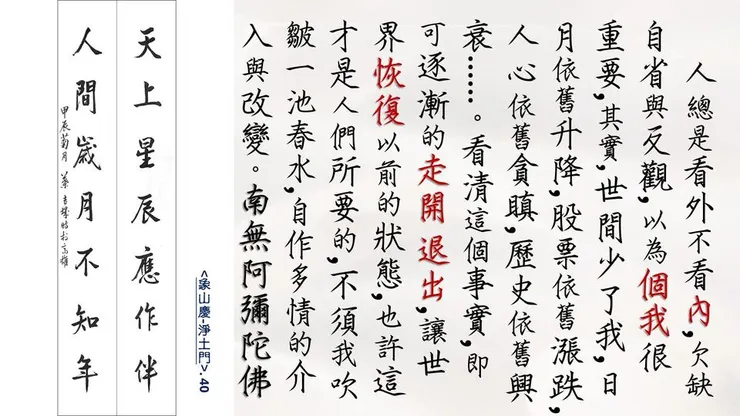 人總是看外不看內,欠缺
自省與反觀,以為個我很
重要,其實,世間少了我,日
月依舊升降,股票依舊漲跌,
人心依舊貪瞋,歷史依舊興
衰……。看清這個事實,即
可逐漸的走開退出,讓世
界恢復以前的狀態,也許這
才是人們所要的,不須我吹
皺一池春水,自作多情的介
入與改變。南無阿彌陀佛
<象山慶-淨土門>.40
天上星辰應作伴
人間歲月不知年
甲辰菊月